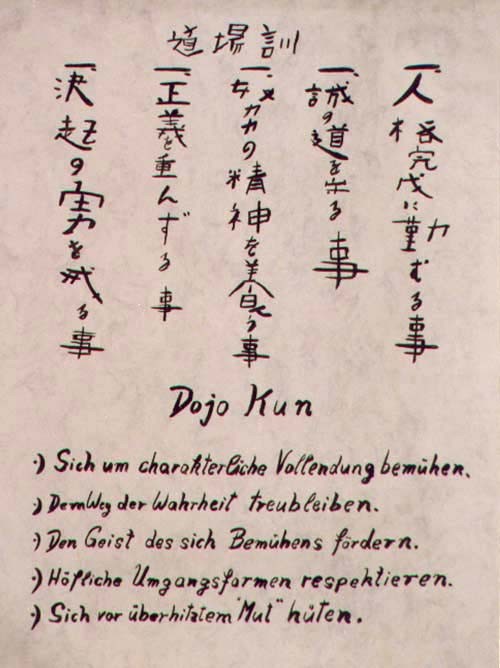 道場訓
一、人格完成に勤むる事
一、誠の道を守る事
一、努力の精神を養う事
一、正義を重んずる事
一、決起の勇を戒る事
Dojo Kun
·) Sich um charakterliche Vollendung bemühen.
·) Dem Weg der Wahrheit treubleiben.
·) Den Geist des sich Bemühens fördern.
·) Höfliche Umgangsformen respektieren.
·) Sich vor überhitztem "Mut" hüten.